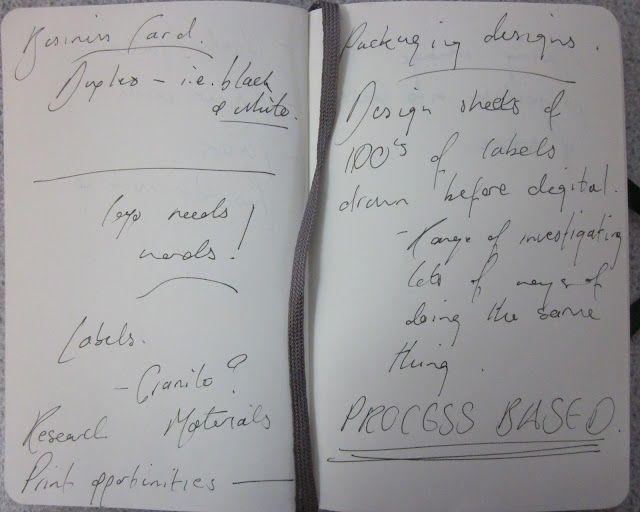 Business Card.
Duplex – i.e. black
& white.
logo needs
words!
Labels.
– Granito?
Research Materials
Print opportunities —
Packaging designs.
Design sheets of
100's of labels
drawn before digital.
– Range of investigating
lots of ways of
doing the same
thing.
PROCESS BASED.